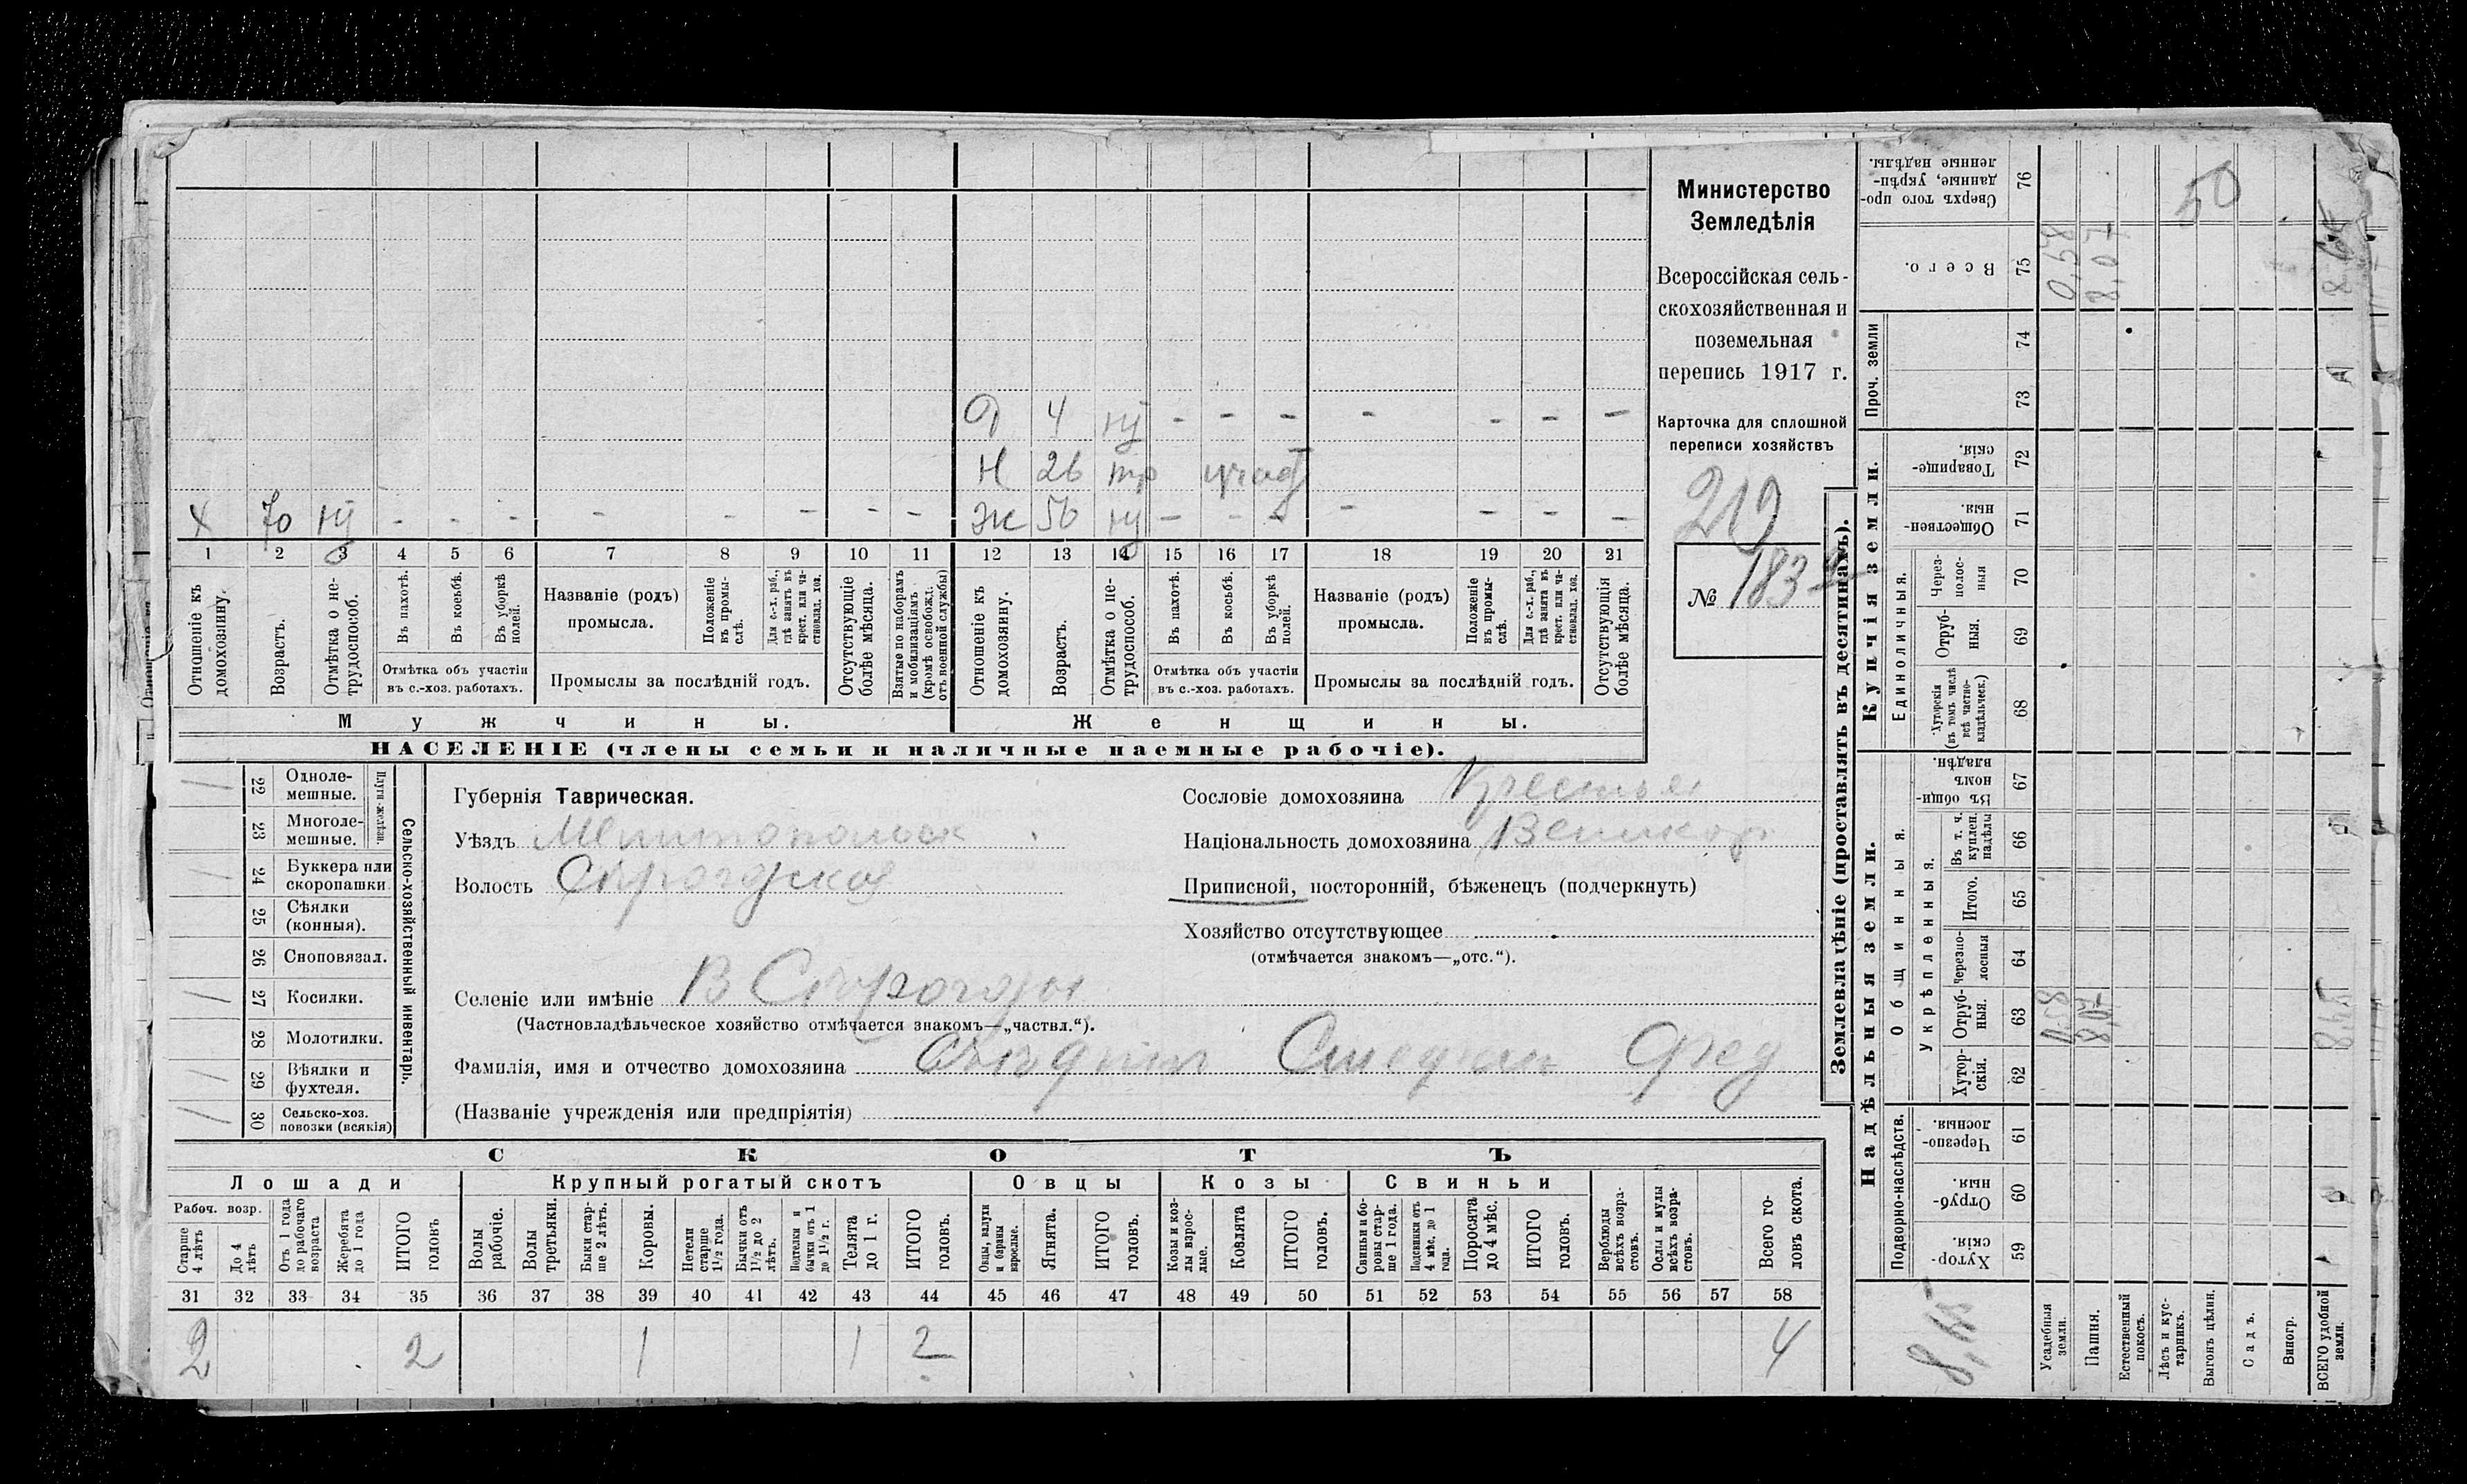 Министерство
Земледѣлія
Всероссійская сель-
скохозяйственная и
поземельная
перепись 1917 г.
Карточка для сплошной
переписи хозяйствъ
219
№ 183
Д 4 нт - - - - - - -
Н 26 тр
Х 70 нт - - - - - - - -
Ж 56 нт - - - - - - -
1 2 3 4 5 6 7 8 9 10 11 12 13 14 15 16 17 18 19 20 21
Отношеніе къ домохозяину.
Возрастъ.
Отмѣтка о не-трудоспособ.
Въ пахотѣ.
Въ косьбѣ.
Въ уборкѣ полей.
Отмѣтка объ участіи въ с.-хоз. работахъ.
Названіе (родъ) промысла.
Положеніе въ промы-слѣ.
Для с.-х. раб., гдѣ занятъ въ крест. или ча-стновлад. хоз.
Промыслы за послѣдній годъ.
Отсутствующіе болѣе мѣсяца.
Взятые по наборамъ и мобилизаціямъ (кромѣ освобожд. отъ военной службы)
Отношеніе къ домохозяину.
Возрастъ.
Отмѣтка о не-трудоспособ.
Въ пахотѣ.
Въ косьбѣ.
Въ уборкѣ полей.
Отмѣтка объ участіи въ с.-хоз. работахъ.
Названіе (родъ) промысла.
Положеніе въ промы-слѣ.
Для с.-х. раб., гдѣ занята въ крест. или ча-стновлад. хоз.
Промыслы за послѣдній годъ.
Отсутствующія болѣе мѣсяца.
Мужчины.
Женщины.
НАСЕЛЕНІЕ (члены семьи и наличные наемные рабочіе).
/ 22 Одноле-мешные.
23 Многоле-мешные.
Плуги желѣзн.
/ 24 Буккера или скоропашки
25 Сѣялки (конныя).
26 Сноповязал.
/ 27 Косилки.
28 Молотилки.
/ 29 Вѣялки и фухтеля.
/ 30 Сельско-хоз. повозки (всякія)
Сельско-хозяйственный инвентарь.
Губернія Таврическая.
Уѣздъ Мелитопольск
Волость Сѣрогозская
Селеніе или имѣніе В Сѣрогозы
(Частновладѣльческое хозяйство отмѣчается знакомъ—„частвл.“).
Фамилія, имя и отчество домохозяина Фед
(Названіе учрежденія или предпріятія)
Сословіе домохозяина Крестьян
Національность домохозяина Великор
Приписной, посторонній, бѣженецъ (подчеркнуть)
Хозяйство отсутствующее
(отмѣчается знакомъ—„отс.“).
СКОТЪ
Лошади
Крупный рогатый скотъ
Овцы
Козы
Свиньи
Рабоч. возр.
Старше 4 лѣтъ
До 4 лѣтъ
Отъ 1 года до рабочаго возраста
Жеребята до 1 года
ИТОГО головъ
Волы рабочіе.
Волы третьяки.
Быки стар-ше 2 лѣтъ.
Коровы.
Нетели старше 1½ года.
Бычки отъ 1½ до 2 лѣтъ.
Подтелки и бычки отъ 1 до 1½ г.
Телята до 1 г.
ИТОГО головъ.
Овцы, валухи и бараны взрослые.
Ягнята.
ИТОГО головъ.
Козы и коз-лы взрос-лые.
Козлята
ИТОГО головъ.
Свиньи и бо-ровы стар-ше 1 года.
Подсвинки отъ 4 мѣс. до 1 года.
Поросята до 4 мѣс.
ИТОГО головъ.
Верблюды всѣхъ возра-стовъ.
Ослы и мулы всѣхъ возра-стовъ.
Всего го-ловъ скота.
31 32 33 34 35 36 37 38 39 40 41 42 43 44 45 46 47 48 49 50 51 52 53 54 55 56 57 58
2 2 1 1 2 4
Землевладѣніе (проставлять въ десятинахъ).
Надѣльныя земли.
Купчія земли.
Проч. земли
Подворно-наслѣдств.
Общинныя.
Укрѣпленныя.
Единоличныя.
Сверхъ того про-данные, укрѣп-ленные надѣлы. 76
Всего. 75
74
73
Товарище-скія. 72
Обществен-ныя. 71
Через-полос-ныя 70
Отруб-ныя. 69
Хуторскія (въ томъ числѣ всѣ частно-владѣльческ.) 68
Въ общин-номъ владѣн. 67
Въ т. ч. куплен. надѣлы 66
Итого. 65
Черезпо-лосныя 64
Отруб-ныя. 63
Хутор-скія. 62
Черезпо-лосныя. 61
Отруб-ныя. 60
Хутор-скія. 59
50
0,58
8,07
0,58
8,07
8,65
Усадебныя земли.
Пашня.
Естественный покосъ.
Лѣсъ и кус-тарникъ.
Выгонъ цѣлин.
Садъ.
Виногр.
ВСЕГО удобной земли.